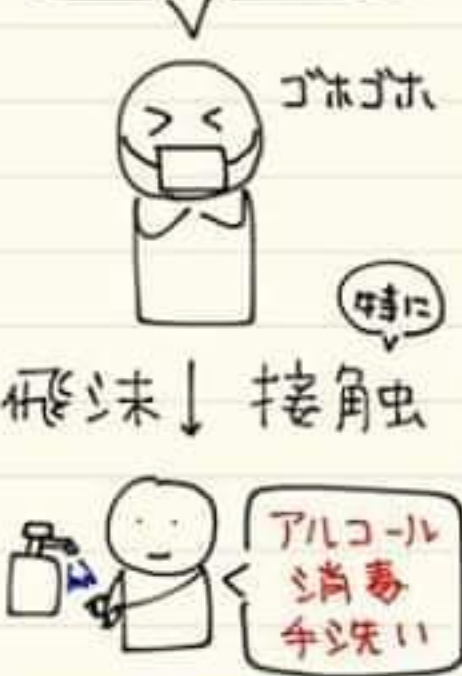 ゴホゴホ
特に
飛沫↓ 接触
アルコール
消毒
手洗い